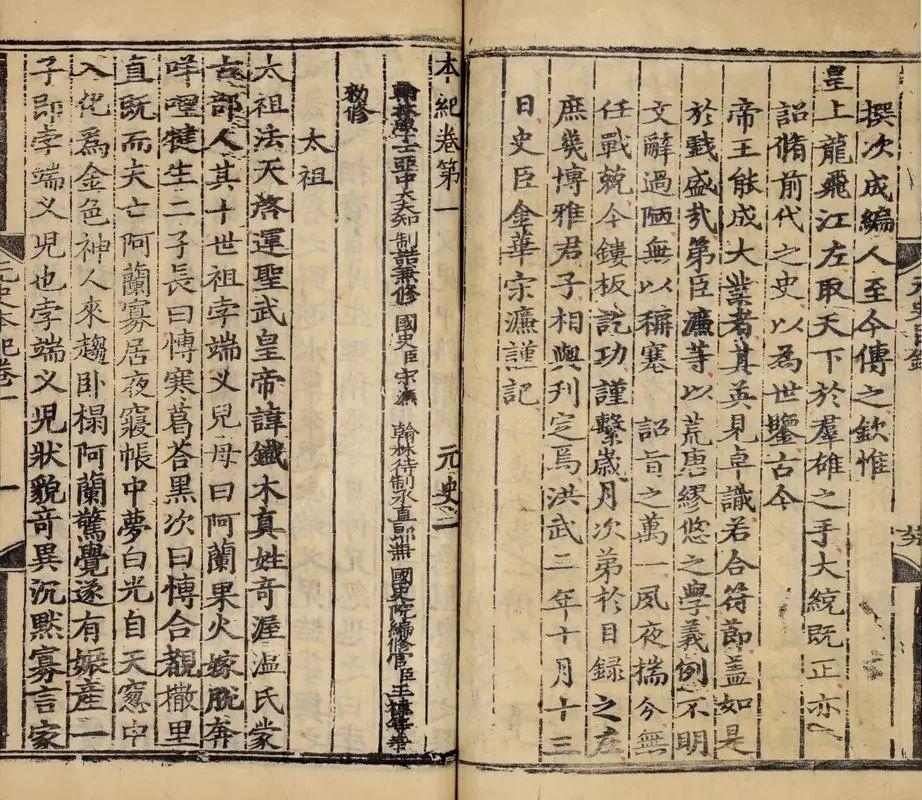 撰次成編人至今傳之欽惟
皇上龍飛江左取天下於羣雄之手大統既正亦
詔脩前代之史以為世鑒古今
帝王能成大業者其英見卓識若合符節盖如是
於戲盛㢤第臣濂等以荒唐繆悠之學義例不明
文辭過陋無以稱塞 詔旨之萬一夙夜揣分無
任戰兢今鏤板訖功謹繫歲月次弟於目録之左
庶幾博雅君子相與刊定焉洪武二年十月十三
日史臣金華宋濂謹記
本紀卷第一 元史一
翰林學士亞中大夫知 制誥兼修 國史臣宋濂 翰林待制承直郎兼 國史院編修官臣王禕等奉
勑修
太祖
太祖法天啓運聖武皇帝諱鐵木真姓奇渥温氏蒙
古部人其十世祖孛端义兒母曰阿蘭果火嫁脱奔
咩哩犍生二子長曰博寒葛荅黑次曰博合覩撒里
直既而夫亡阿蘭寡居夜寢帳中夢白光自天窻中
入化爲金色神人來趨卧榻阿蘭驚覺遂有娠産一
子即孛端义兒也孛端义兒狀貌竒異沉默寡言家